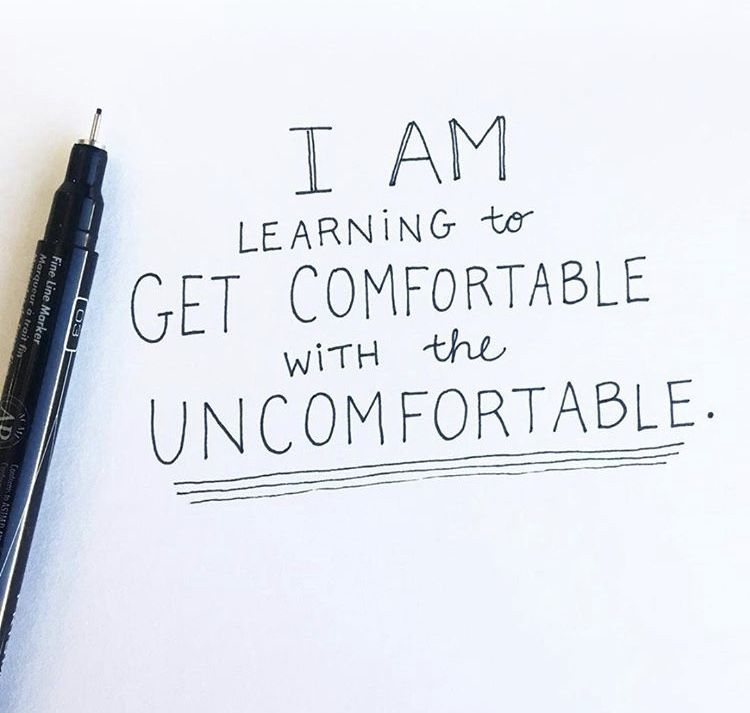 I AM
LEARNING to
GET COMFORTABLE
WITH the
UNCOMFORTABLE.
Fine Line Marker
Marqueur à trait fin
03
AP